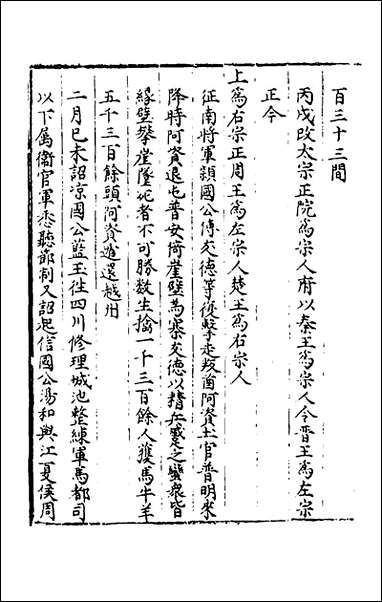 百三十三間
丙戌改大宗正院爲宗人府以秦王爲宗人令晋王爲左宗
正今
上爲右宗正周王爲左宗人楚王爲右宗人
征南將軍潁國公傅友德等復擊走叛酋阿資土官普明來
降時阿資退屯普安倚崖壁爲寨友德以精兵蹙之蠻衆皆
緣壁攀崖墜死者不可勝數生擒一千三百餘人獲馬牛羊
五千三百餘頭阿資遁還越州
二月己未詔涼國公藍玉往四川修理城池整練軍馬都司
以下属衞官軍悉聽節制又詔起信國公湯和與江夏侯周